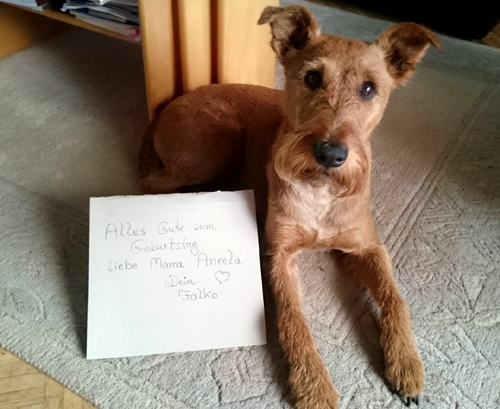 Alles Gute zum
Geburtstag
Liebe Mama Aneela
Dein ♡
Falko